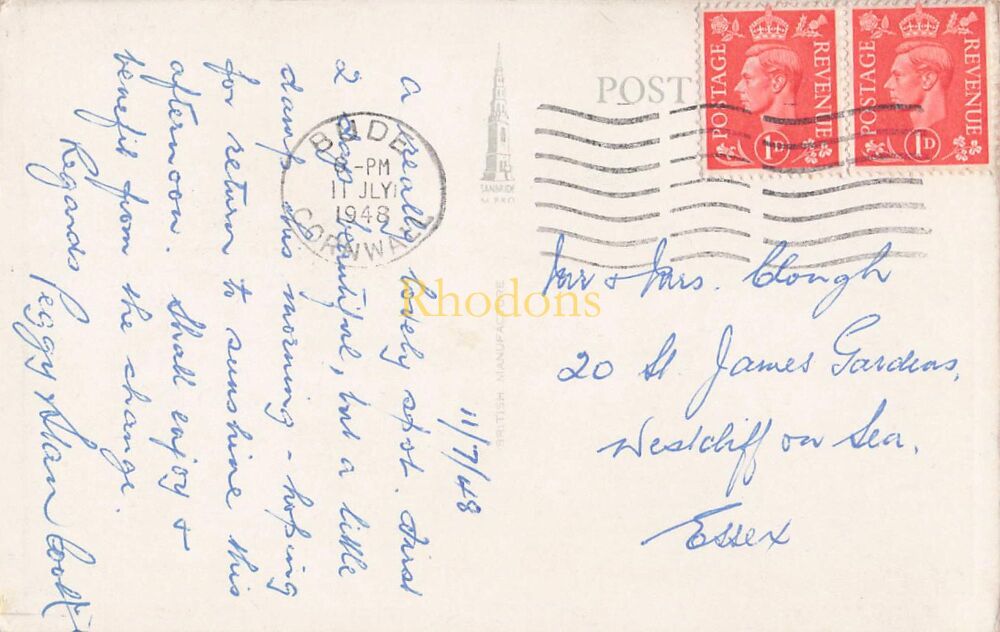 11/7/48
A really lovely spot. First
2 days beautiful, but a little
damp this morning - hoping
for return to sunshine this
afternoon. Shall enjoy &
benefit from the change.
Regards Peggy & Ian Cook
POST
POSTAGE REVENUE
1D
POSTAGE REVENUE
1D
BUDE
-PM
11 JLY
1948
CORNWALL
BRITISH MANUFACTURE
Rhodons
Mr & Mrs. Clough
20 St. James Gardens,
Westcliff on Sea.
Essex